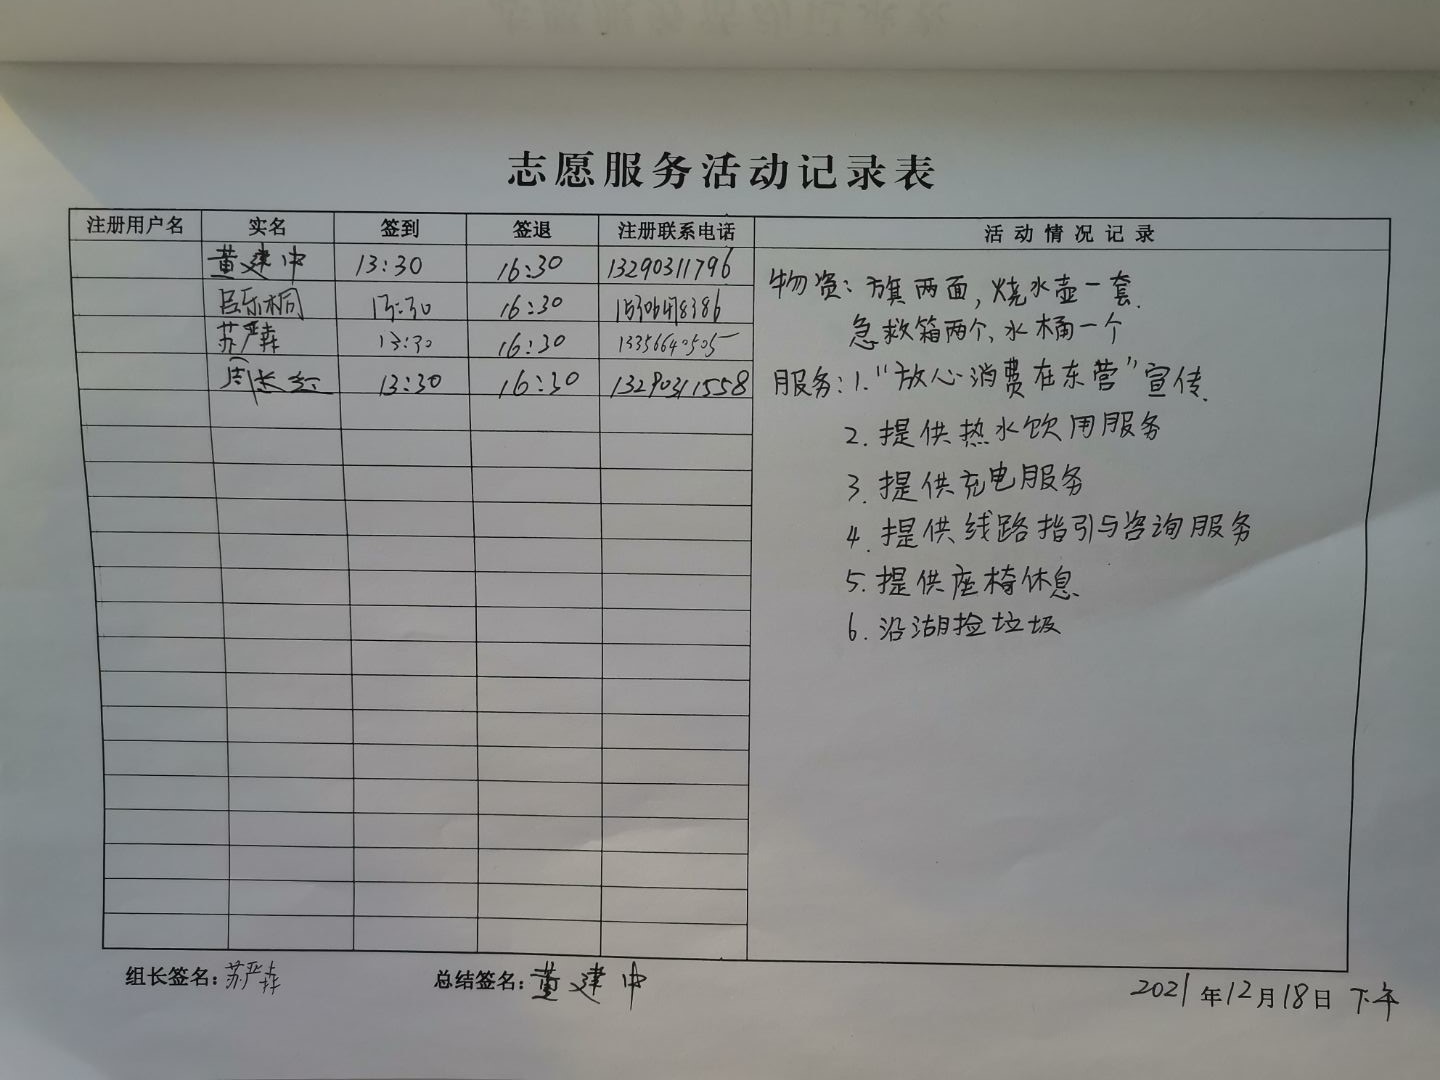 志愿服务活动记录表
注册用户名 实名 签到 签退 注册联系电话 活动情况记录
董建中 13:30 16:30 13290311796
乐桐 13:30 16:30
苏严犇 13:30 16:30 13356640505
周长红 13:30 16:30 13290311558
物资：旗两面，烧水壶一套、
急救箱两个、水桶一个
服务：1.“放心消费在东营”宣传、
2.提供热水饮用服务
3.提供充电服务
4.提供线路指引与咨询服务
5.提供座椅休息
6.沿湖捡垃圾
组长签名：苏严犇 总结签名：董建中
2021年12月18日 下午